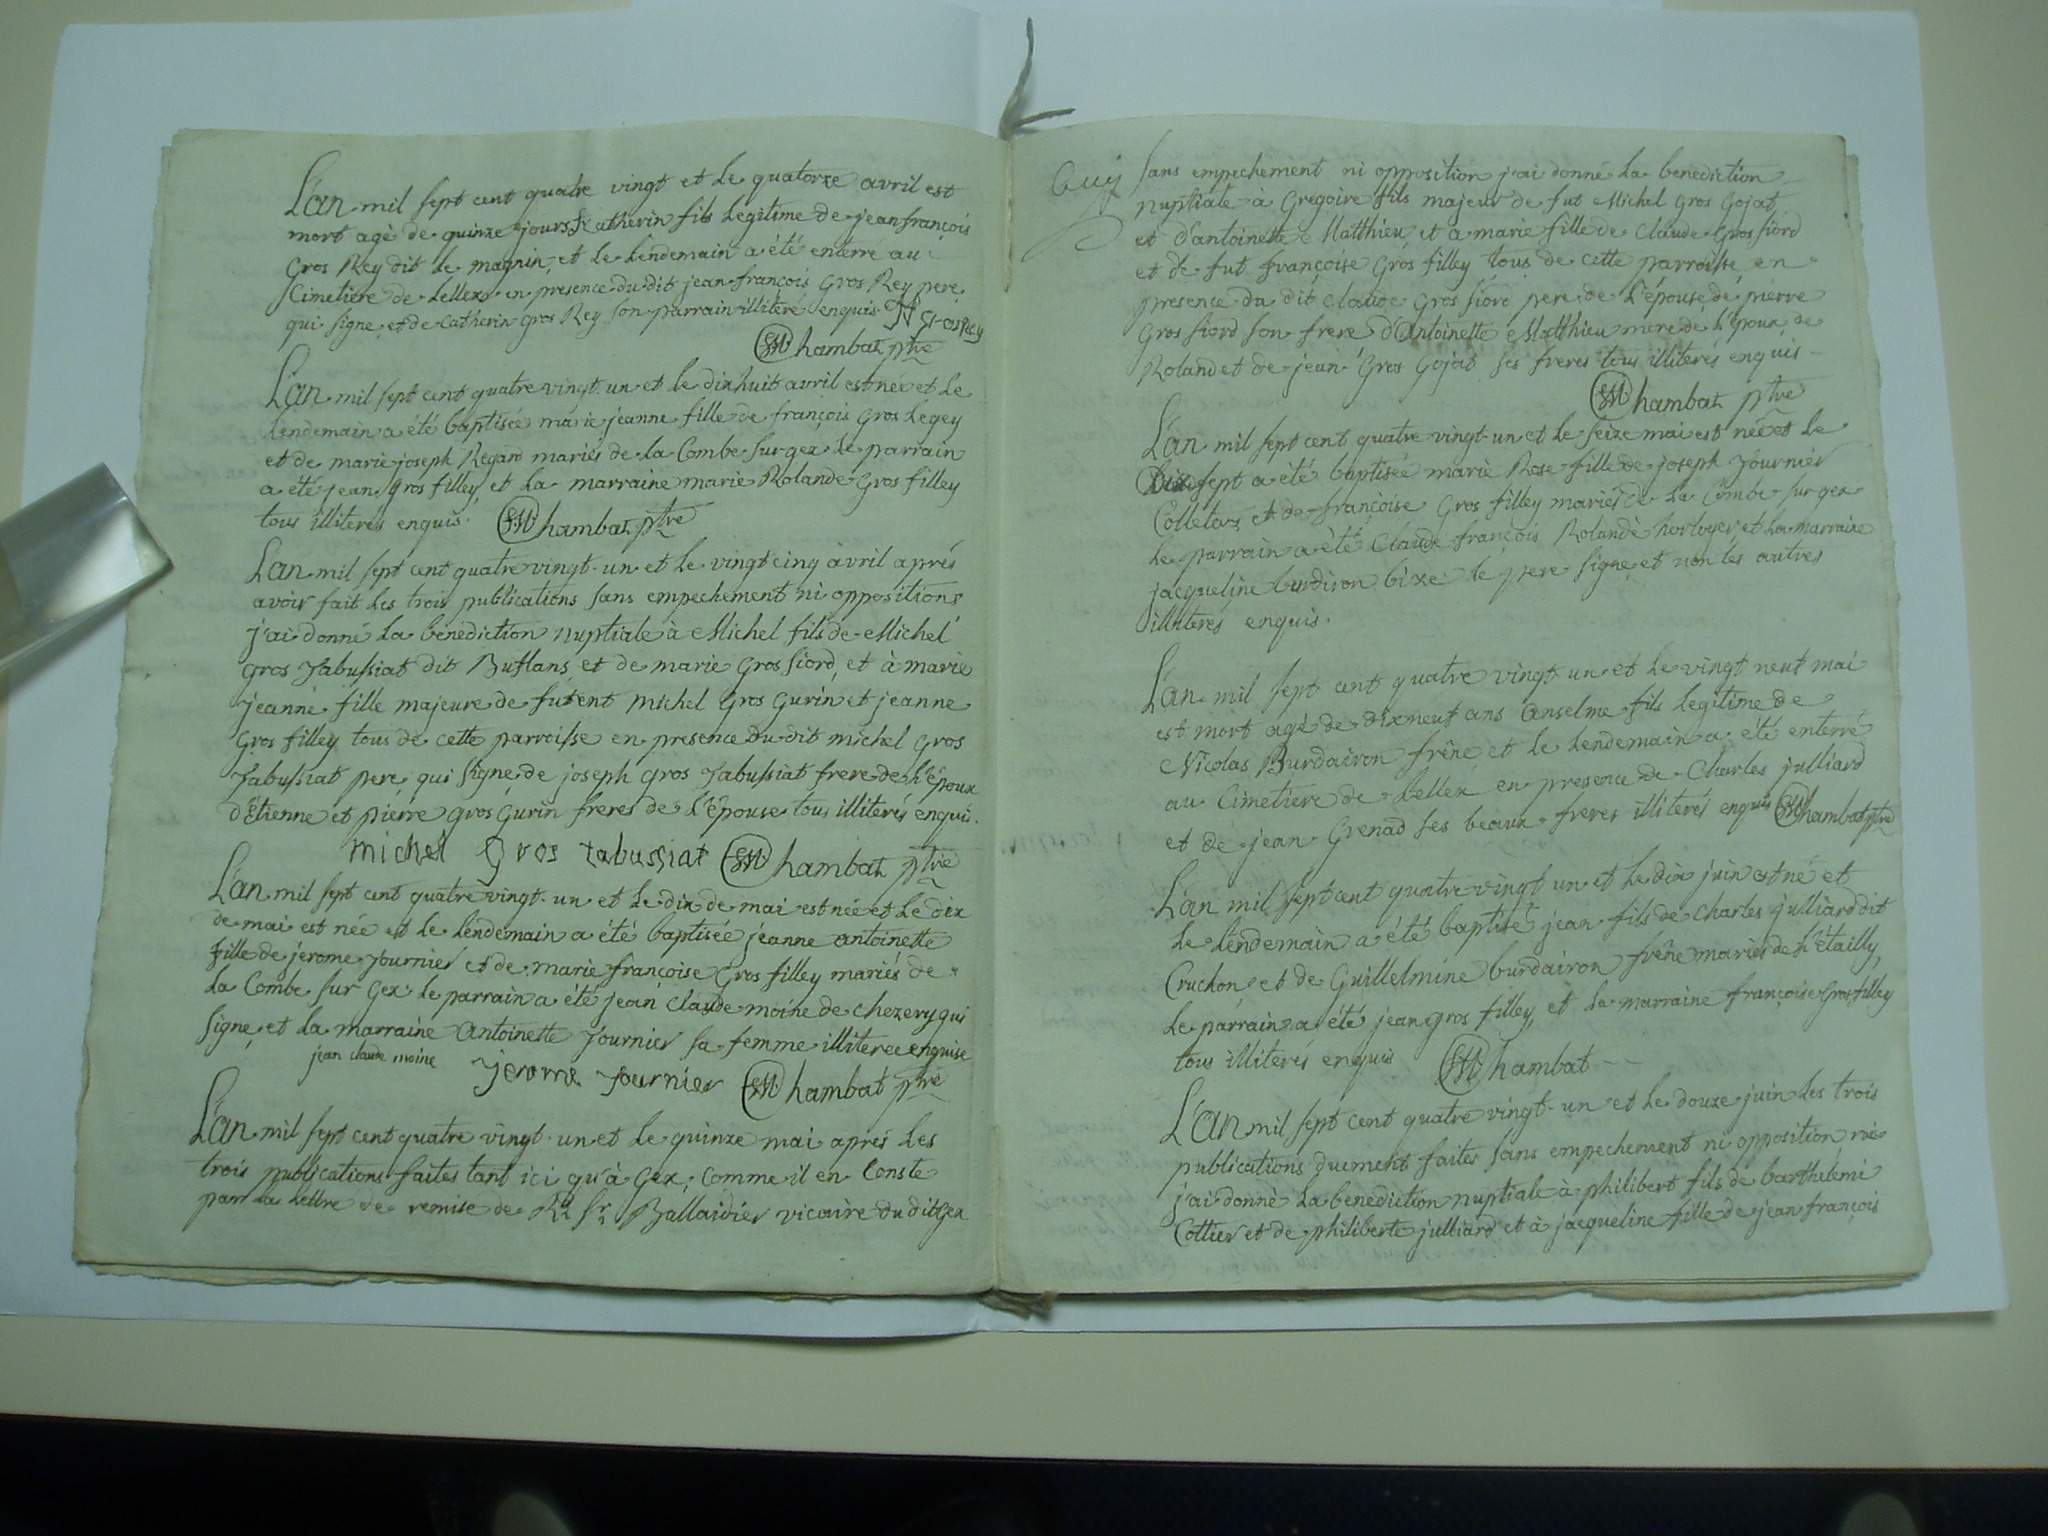 L'an mil sept cent quatre vingt et le quatorze avril est
mort agé de quinze jours Catherin fils legitime de jean françois
Gros Rey dit le magnin, et le lendemain a été enterré au
Cimetiere de Lellex en presence du dit jean françois Gros Rey pere
qui signe, et de Catherin Gros Rey son parrain illiteré enquis. grosrey
Chambaz ptre
L'an mil sept cent quatre vingt-un et le dix huit avril est née et le
lendemain a été baptisée marie jeanne fille de françois Gros Legey
et de marie joseph Regard mariés de la Combe sur gex le parrain
a été jean gros filley, et la marraine marie Rolande Gros filley
tous illiterés enquis. Chambaz ptre
L'an mil sept cent quatre vingt-un et le vingt cinq avril aprés
avoir fait les trois publications sans empechement ni oppositions
j'ai donné la benediction nuptiale à Michel fils de Michel
Gros Tabussiat dit Buflans, et de marie Gros fiord, et à marie
jeanne fille majeure de futent Michel Gros Gurin et jeanne
Gros filley tous de cette parroisse en presence du dit michel Gros
Tabussiat pere, qui signe, de joseph Gros Tabussiat frere de l'époux
d'Étienne et pierre gros Gurin freres de l'épouse tous illiterés enquis.
michel Gros tabussiat Chambaz ptre
L'an mil sept cent quatre vingt-un et le dix de mai est née et le dix
de mai est née et le lendemain a été baptisée jeanne antoinette
fille de jerome Journier et de marie françoise Gros filley mariés de
la Combe sur Gex le parrain a été jean claude moine de chezery qui
signe, et la marraine Antoinette Journier sa femme illiteree enquise
jean claude moine jerome fournier Chambaz ptre
L'an mil sept cent quatre vingt-un et le quinze mai aprés les
trois publications faites tant ici qu'à Gex, comme il en Conste
par la lettre de remise de Rd Sr Ballaidier vicaire du dit Gex
sans empechement ni opposition j'ai donné la benediction
nuptiale à Gregoire fils majeur de fut Michel Gros Gojat
et d'antoinette Matthieu et a marie fille de Claude Gros fiord
et de fut françoise Gros filley tous de cette parroisse en
presence du dit claude Gros fiord pere de l'épouse, de pierre
Gros fiord son frere d'Antoinette Matthieu mere de l'époux, de
Roland et de jean Gros Gojat ses freres tous illiterés enquis
Chambaz ptre
L'an mil sept cent quatre vingt-un et le seize mai est née et le
Dix sept a été baptisée marie Rose fille de joseph Journier
Colletaz et de françoise Gros filley mariés de la Combe sur gex
le parrain a été Claude françois Rolande horloger et la marraine
jacqueline burdiron bize le pere signe, et non les autres
illiterés enquis.
L'an mil sept cent quatre vingt-un et le vingt neuf mai
est mort agé de dix neuf ans Anselme fils legitime de
Nicolas Burdairon frêne et le lendemain a été enterré
au Cimetiere de Lellex en presence de Charles julliard
et de jean Grenad ses beaux-freres illiterés enquis Chambaz ptre
L'an mil sept cent quatre vingt un et le dix juin est né et
le lendemain a été baptisé jean fils de Charles julliard dit
Cruchon, et de Guillelmine burdairon frêne mariés de l'étailly,
le parrain a été jean gros filley, et la marraine françoise Gros filley
tous illiterés enquis Chambat
L'an mil sept cent quatre vingt-un et le douze juin les trois
publications duement faites sans empechement ni opposition
j'ai donné la benediction nuptiale à philibert fils de barthelemi
Cottier et de philiberte julliard et à jacqueline fille de jean françois